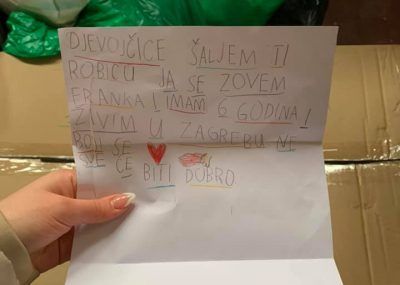 DJEVOJČICE ŠALJEM TI
ROBICU JA SE ZOVEM
FRANKA I IMAM 6 GODINA I
ŽIVIM U ZAGREBU NE
BOJ SE
SVE ĆE BITI DOBRO